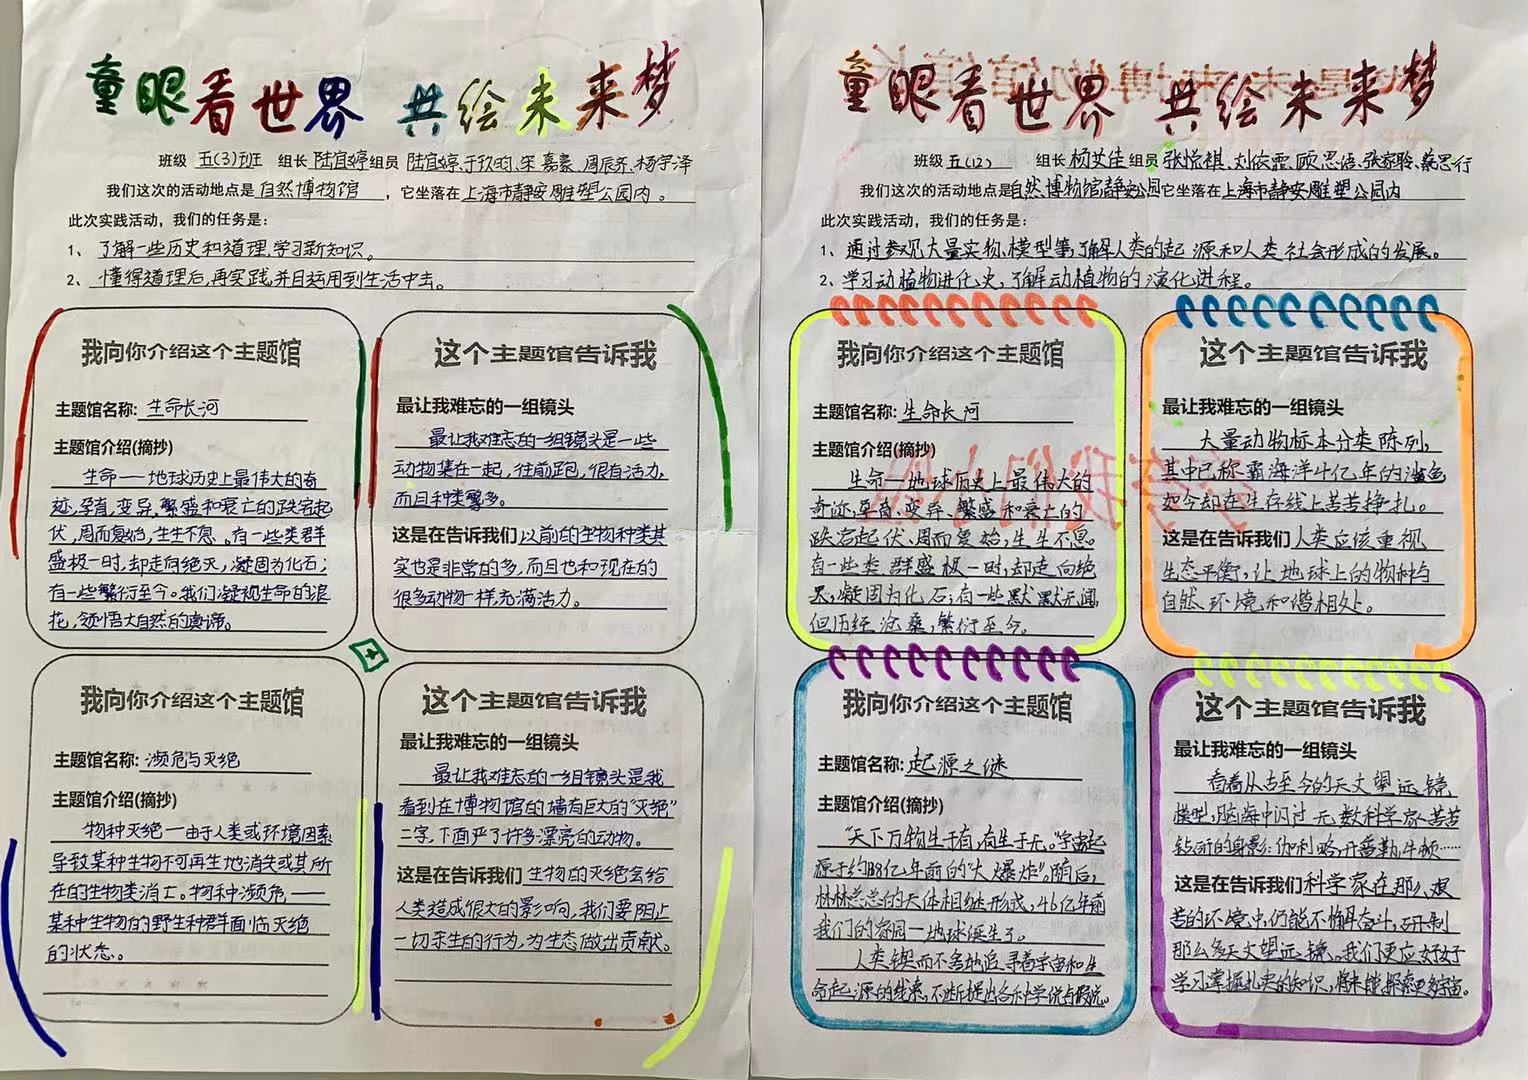 童眼看世界 共绘未来梦
班级 五(3)班 组长 陆宜婷 组员 陆宜婷、于玖昀、宋嘉豪、周辰齐、杨宇泽
我们这次的活动地点是 自然博物馆 ，它坐落在上海市静安雕塑公园内。
此次实践活动，我们的任务是：
1、了解一些历史和道理,学习新知识。
2、懂得道理后,再实践,并且运用到生活中去。
我向你介绍这个主题馆
主题馆名称: 生命长河
主题馆介绍(摘抄)
生命——地球历史上最伟大的奇
迹,孕育,变异,繁盛和衰亡的跌宕起
伏,周而复始,生生不息。有一些类群
盛极一时,却走向绝灭,凝固为化石;
有一些繁衍至今。我们凝视生命的浪
花,领悟大自然的真谛。
这个主题馆告诉我
最让我难忘的一组镜头
最让我难忘的一组镜头是一些
动物集在一起,往前跑,很有活力,
而且种类繁多。
这是在告诉我们以前的生物种类其
实也是非常的多,而且也和现在的
很多动物一样,充满活力。
我向你介绍这个主题馆
主题馆名称: 濒危与灭绝
主题馆介绍(摘抄)
物种灭绝—由于人类或环境因素
导致某种生物不可再生地消失或其所
在的生物类消亡。物种濒危——
某种生物的野生种群面临灭绝
的状态。
这个主题馆告诉我
最让我难忘的一组镜头
最让我难忘的一组镜头是我
看到在博物馆的墙有巨大的“灭绝”
二字,下面画了许多漂亮的动物。
这是在告诉我们 生物的灭绝会给
人类造成很大的影响,我们要阻止
一切杀生的行为,为生态做出贡献。
童眼看世界 共绘未来梦
班级 五(12) 组长 杨艾佳 组员 张悦祺、刘依霏、顾思洁、张家聆、蔡思行
我们这次的活动地点是自然博物馆静安公园它坐落在上海市静安雕塑公园内
此次实践活动，我们的任务是：
1、通过参观大量实物、模型等,了解人类的起源和人类社会形成的发展。
2、学习动植物进化史,了解动植物的演化进程。
我向你介绍这个主题馆
主题馆名称: 生命长河
主题馆介绍(摘抄)
生命—地球历史上最伟大的
奇迹,孕育、变异、繁盛和衰亡的
跌宕起伏、周而复始,生生不息。
有一些类群盛极一时,却走向绝
灭,凝固为化石;有一些默默无闻,
但历经沧桑,繁衍至今。
这个主题馆告诉我
最让我难忘的一组镜头
大量动物标本分类陈列,
其中已称霸海洋十亿年的鲨鱼
如今却在生存线上苦苦挣扎。
这是在告诉我们 人类应该重视
生态平衡,让地球上的物种与
自然、环境和谐相处。
我向你介绍这个主题馆
主题馆名称: 起源之谜
主题馆介绍(摘抄)
“天下万物生于有,有生于无。”宇宙起
源于约138亿年前的“大爆炸”。随后,
林林总总的天体相继形成,46亿年前
我们的家园—地球诞生了。
人类锲而不舍地追寻着宇宙和生
命起源的线索,不断提出各种学说与假说。
这个主题馆告诉我
最让我难忘的一组镜头
看着从古至今的天文望远镜
模型,脑海中闪过无数科学家苦苦
钻研的身影:伽利略,开普勒,牛顿……
这是在告诉我们科学家在那么艰
苦的环境中,仍能不懈奋斗,研制
那么多天文望远镜。我们更应好好
学习,掌握扎实的知识,将来能探索更多宇宙。